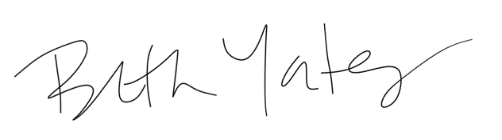 Beth Yates